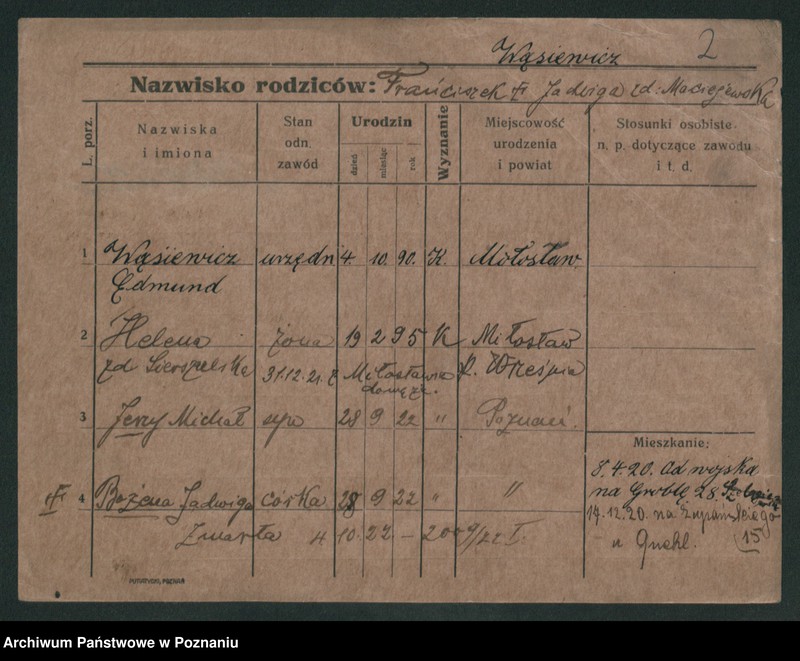 Wąsiewicz 2
Nazwisko rodziców: Franciszek Jadwiga zd. Maciejewska
L. porz.
Nazwiska i imiona
Stan odn. zawód
Urodzin
dzień miesiąc rok
Wyznanie
Miejscowość urodzenia i powiat
Stosunki osobiste n. p. dotyczące zawodu i t. d.
1 Wąsiewicz urzędn 4. 10. 90. K. Miłosław
Edmund
2 Helena żona 19 2 95 K Miłosław
zd 31.12.21. z Miłosławia p. Września
3 Jerzy Michał syn 28 9 22 " Poznań.
Mieszkanie:
8.4.20. od wojska
na Groblę 28.
4 Bożena Jadwiga córka 28 9 22 " "
14.12.20. na Żupańskiego
15
Zmarła 4 10 22 - 2009/22 I.
u
PUTIATYCKI, POZNAŃ
Archiwum Państwowe w Poznaniu